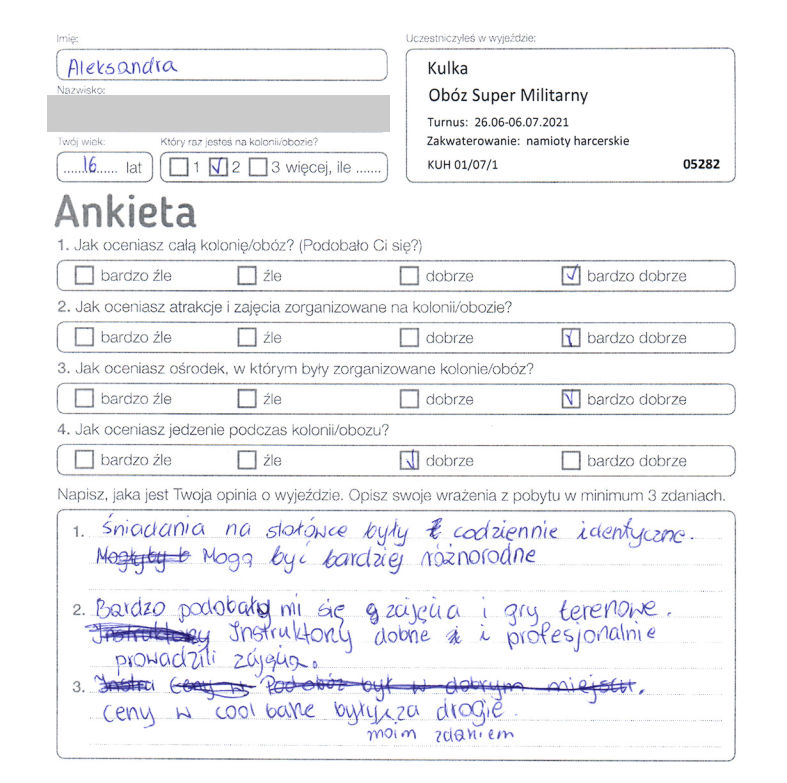 Imię:
Aleksandra
Uczestniczyłeś w wyjeździe:
Kulka
Obóz Super Militarny
Turnus: 26.06-06.07.2021
Zakwaterowanie: namioty harcerskie
KUH 01/07/1 05282
Nazwisko:
Twój wiek: Który raz jesteś na kolonii/obozie?
16 lat 1 2 3 więcej, ile .......
Ankieta
1. Jak oceniasz całą kolonię/obóz? (Podobało Ci się?)
bardzo źle źle dobrze bardzo dobrze
2. Jak oceniasz atrakcje i zajęcia zorganizowane na kolonii/obozie?
bardzo źle źle dobrze bardzo dobrze
3. Jak oceniasz ośrodek, w którym były zorganizowane kolonie/obóz?
bardzo źle źle dobrze bardzo dobrze
4. Jak oceniasz jedzenie podczas kolonii/obozu?
bardzo źle źle dobrze bardzo dobrze
Napisz, jaka jest Twoja opinia o wyjeździe. Opisz swoje wrażenia z pobytu w minimum 3 zdaniach.
1. śniadania na stołówce były codziennie identyczne.
Mogłyby b Mogą być bardziej różnorodne
2. Bardzo podobały mi się zajęcia i gry terenowe.
Instruktorzy Instruktorzy dobrze i profesjonalnie
prowadzili zajęcia.
3. Instru Ceny w Podobóz był w dobrym miejscu.
Ceny w cool barze były za drogie.
moim zdaniem